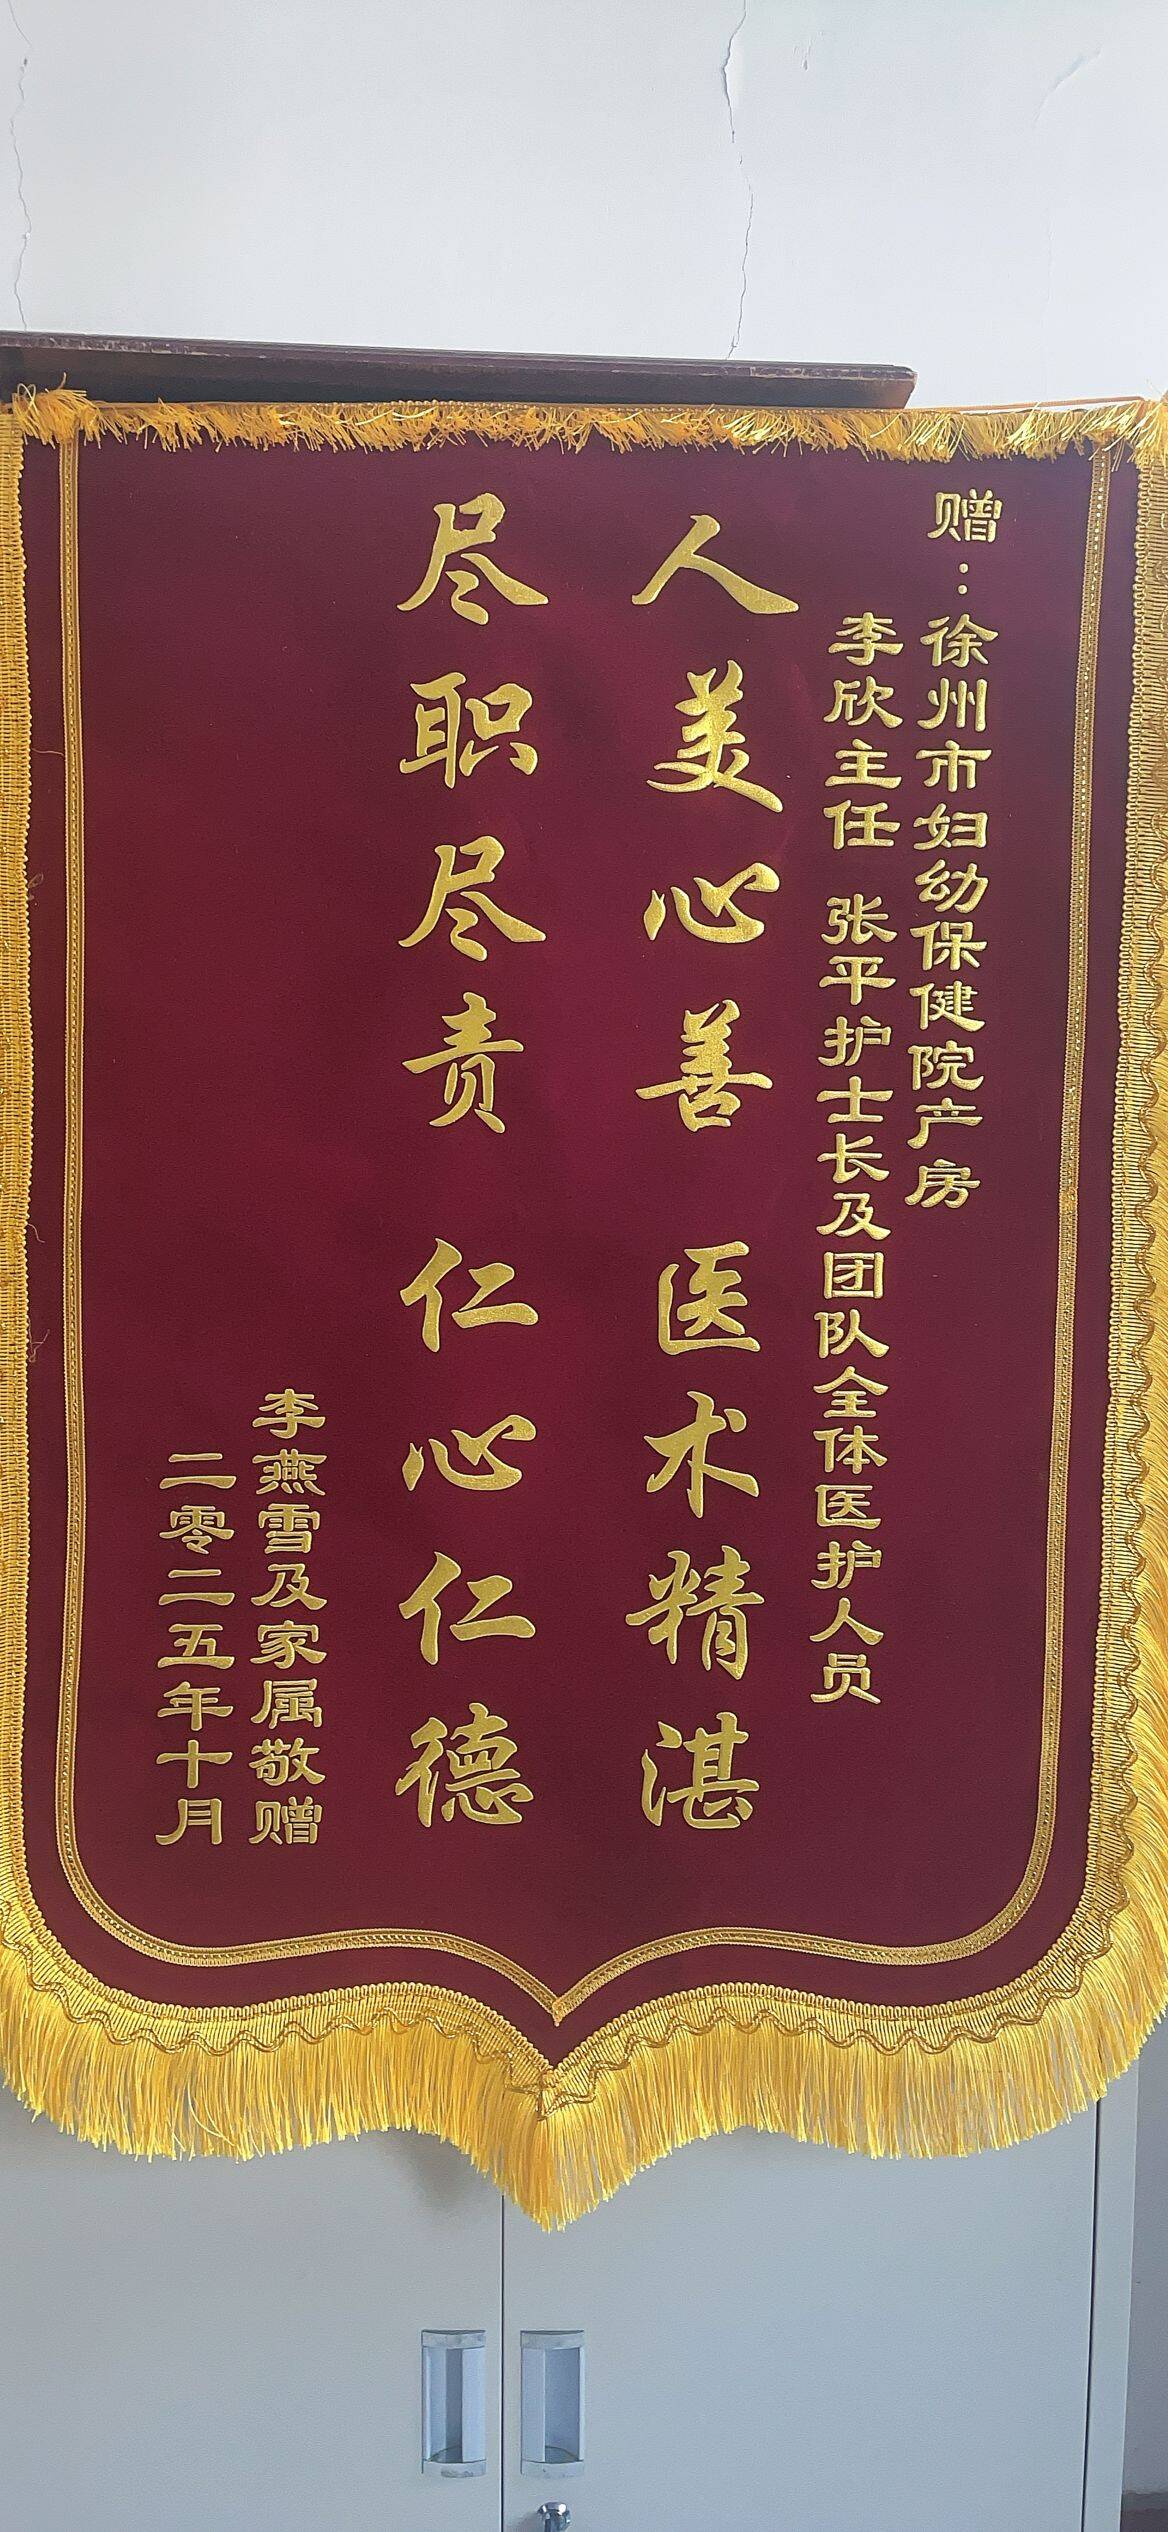 赠：徐州市妇幼保健院产房
李欣主任 张平护士长及团队全体医护人员
人美心善 医术精湛
尽职尽责 仁心仁德
李燕雪及家属敬赠
二零二五年十月